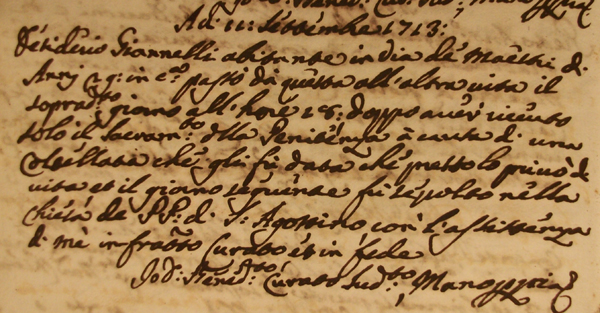 A di 11: Settembre 1713:
Desiderio Giannelli abitante in via de Maestri di
Anni 29: in c.ª passò da questa all'altra vita il
soprad.tto giorno all'hore 18: doppo aver riceuto
solo il sacram.to della Penitenza à causa di una
Coltellata che gli fù data che presto lo privò di
vita et il giorno sequente fù sepolto nella
Chiesa de PP: di S. Agostino con l'assistenza
di mè infratto Curato et in fede
Curato sud.to Mano pp.ria